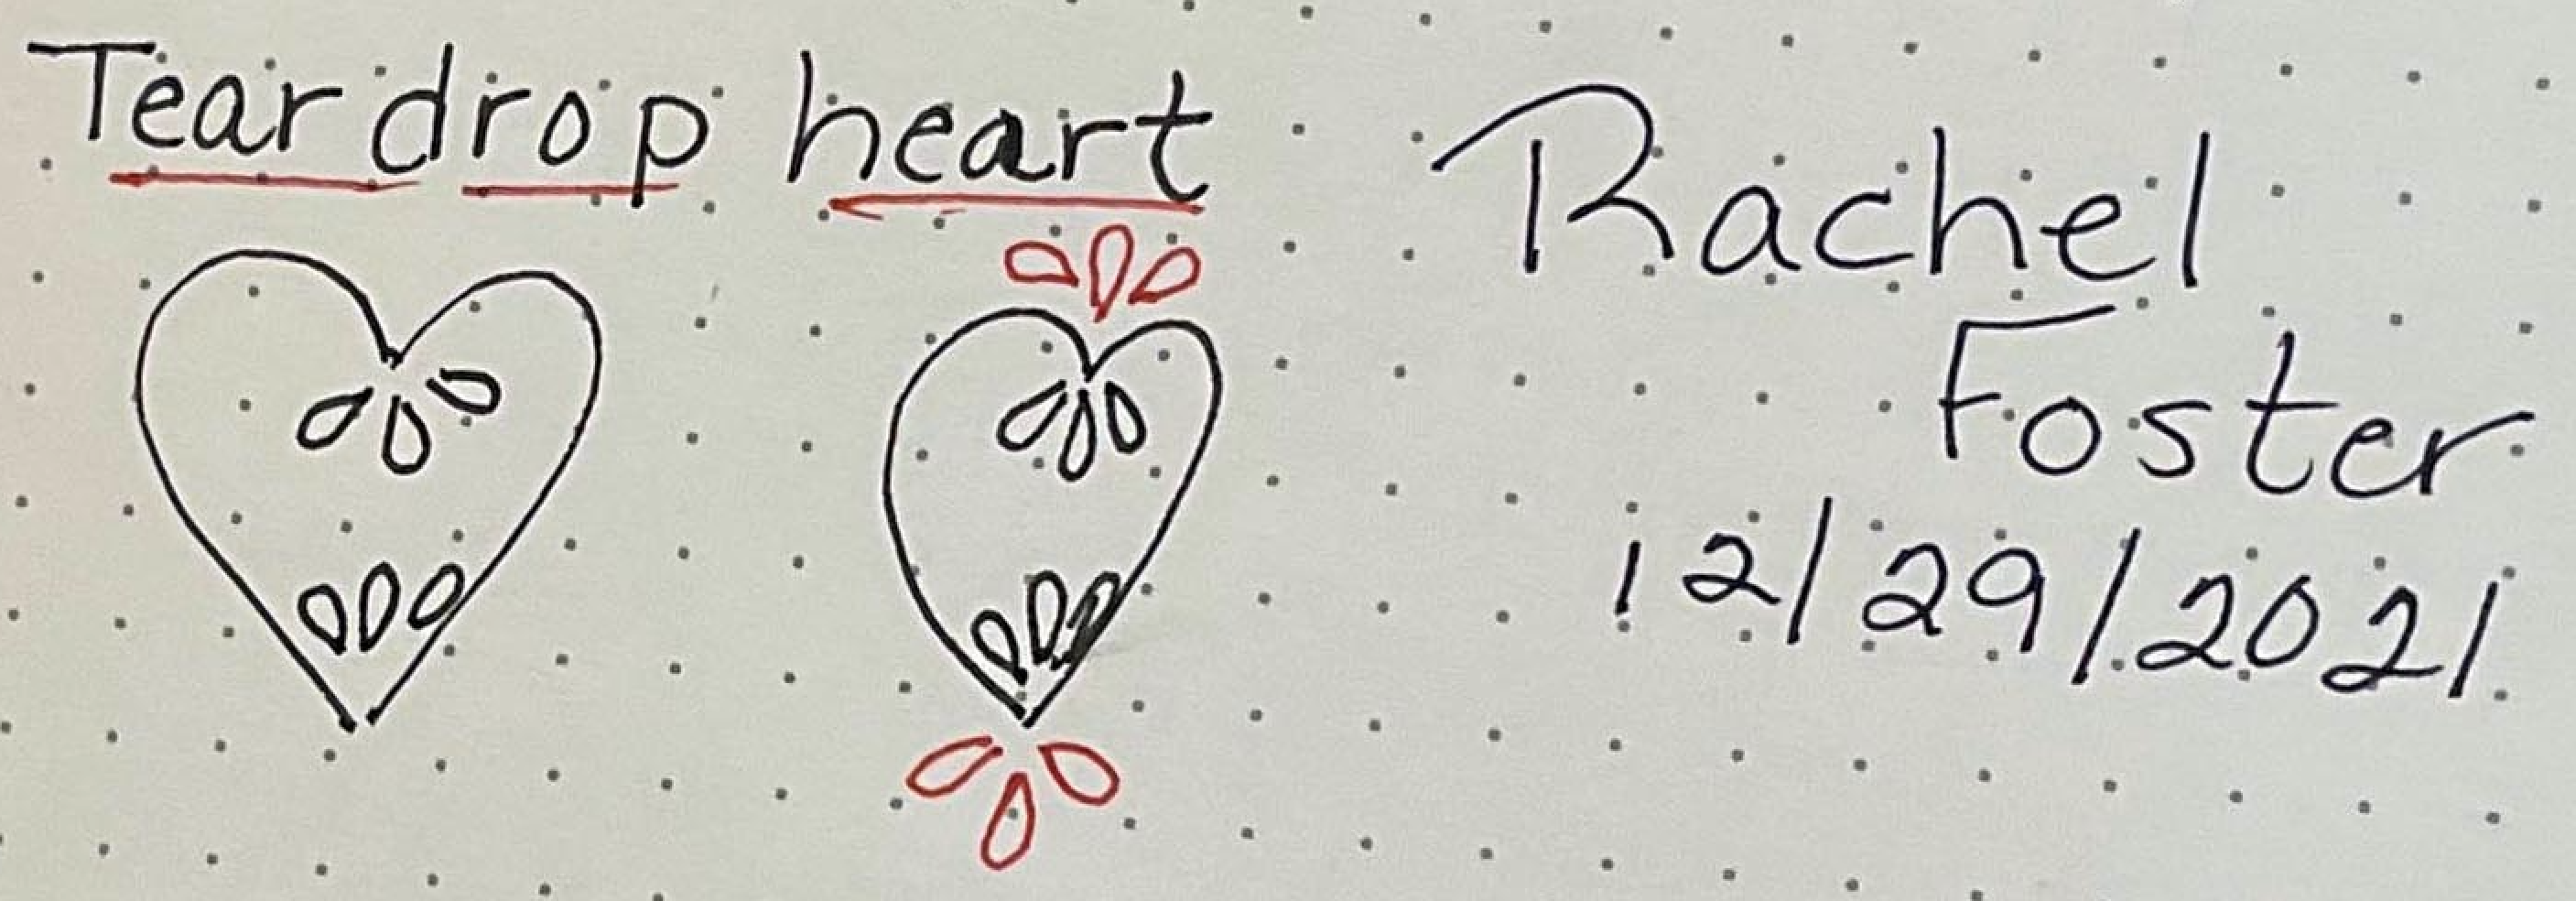 Teardrop heart
Rachel
Foster
12/29/2021